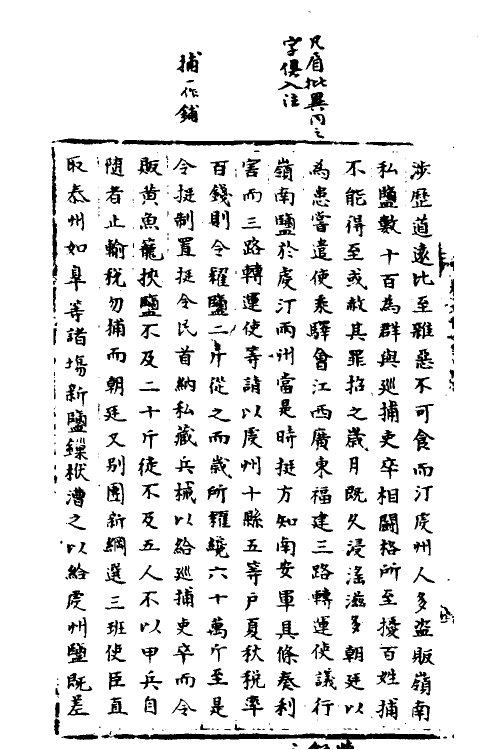 凡眉批異同之
字俱入注
捕一作鋪
涉歷道遠比至雜惡不可食而汀虔州人多盜販嶺南
私鹽數十百為群與巡捕吏卒相鬭格所至擾百姓捕
不能得至或赦其罪招之歲月既久浸滛滋多朝廷以
為患當遣使乘驛會江西廣東福建三路轉運使議行
嶺南鹽於虔汀兩州當是時挺方知南安軍具條奏利
害而三路轉運使等請以虔州十縣五等戶夏秋稅率
百錢則令糴鹽二斤從之而歲所糴纔六十萬斤至是
令挺制置挺令民首納私藏兵械以給巡捕吏卒而令
販黄魚籠挾鹽不及二十斤徒不及五人不以甲兵自
随者止輸稅勿捕而朝廷又別團新綱選三班使臣直
取泰州如皐等諸塲新鹽鏁栿漕之以給虔州鹽既差